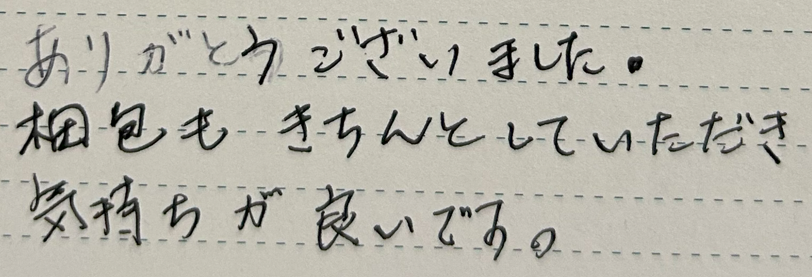 ありがとうございました。
梱包もきちんとしていただき
気持ちが良いです。